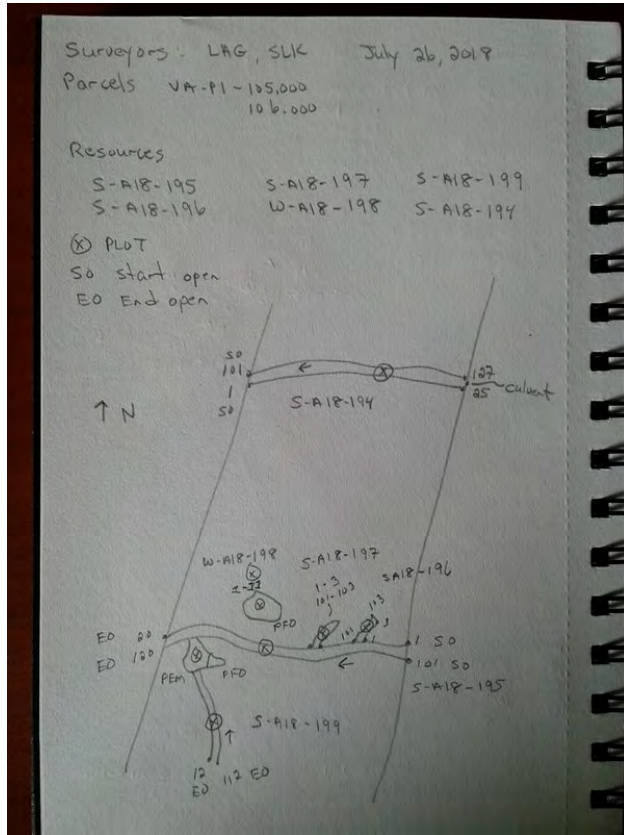 Surveyors: LAG, SLK July 26, 2018
Parcels VA-P1-105.000
106.000
Resources
S-A18-195 S-A18-197 S-A18-199
S-A18-196 W-A18-198 S-A18-194
ⓧ PLOT
SO start open
EO End open
SO
101
1
SO
127
25
culvert
↑ N
S-A18-194
W-A18-198
S-A18-197
1-3
101-103
SA18-196
103
3
101
1
PFO
EO 20
EO 120
1 SO
101 SO
S-A18-195
PEM
PFO
S-A18-199
12
EO
112 EO